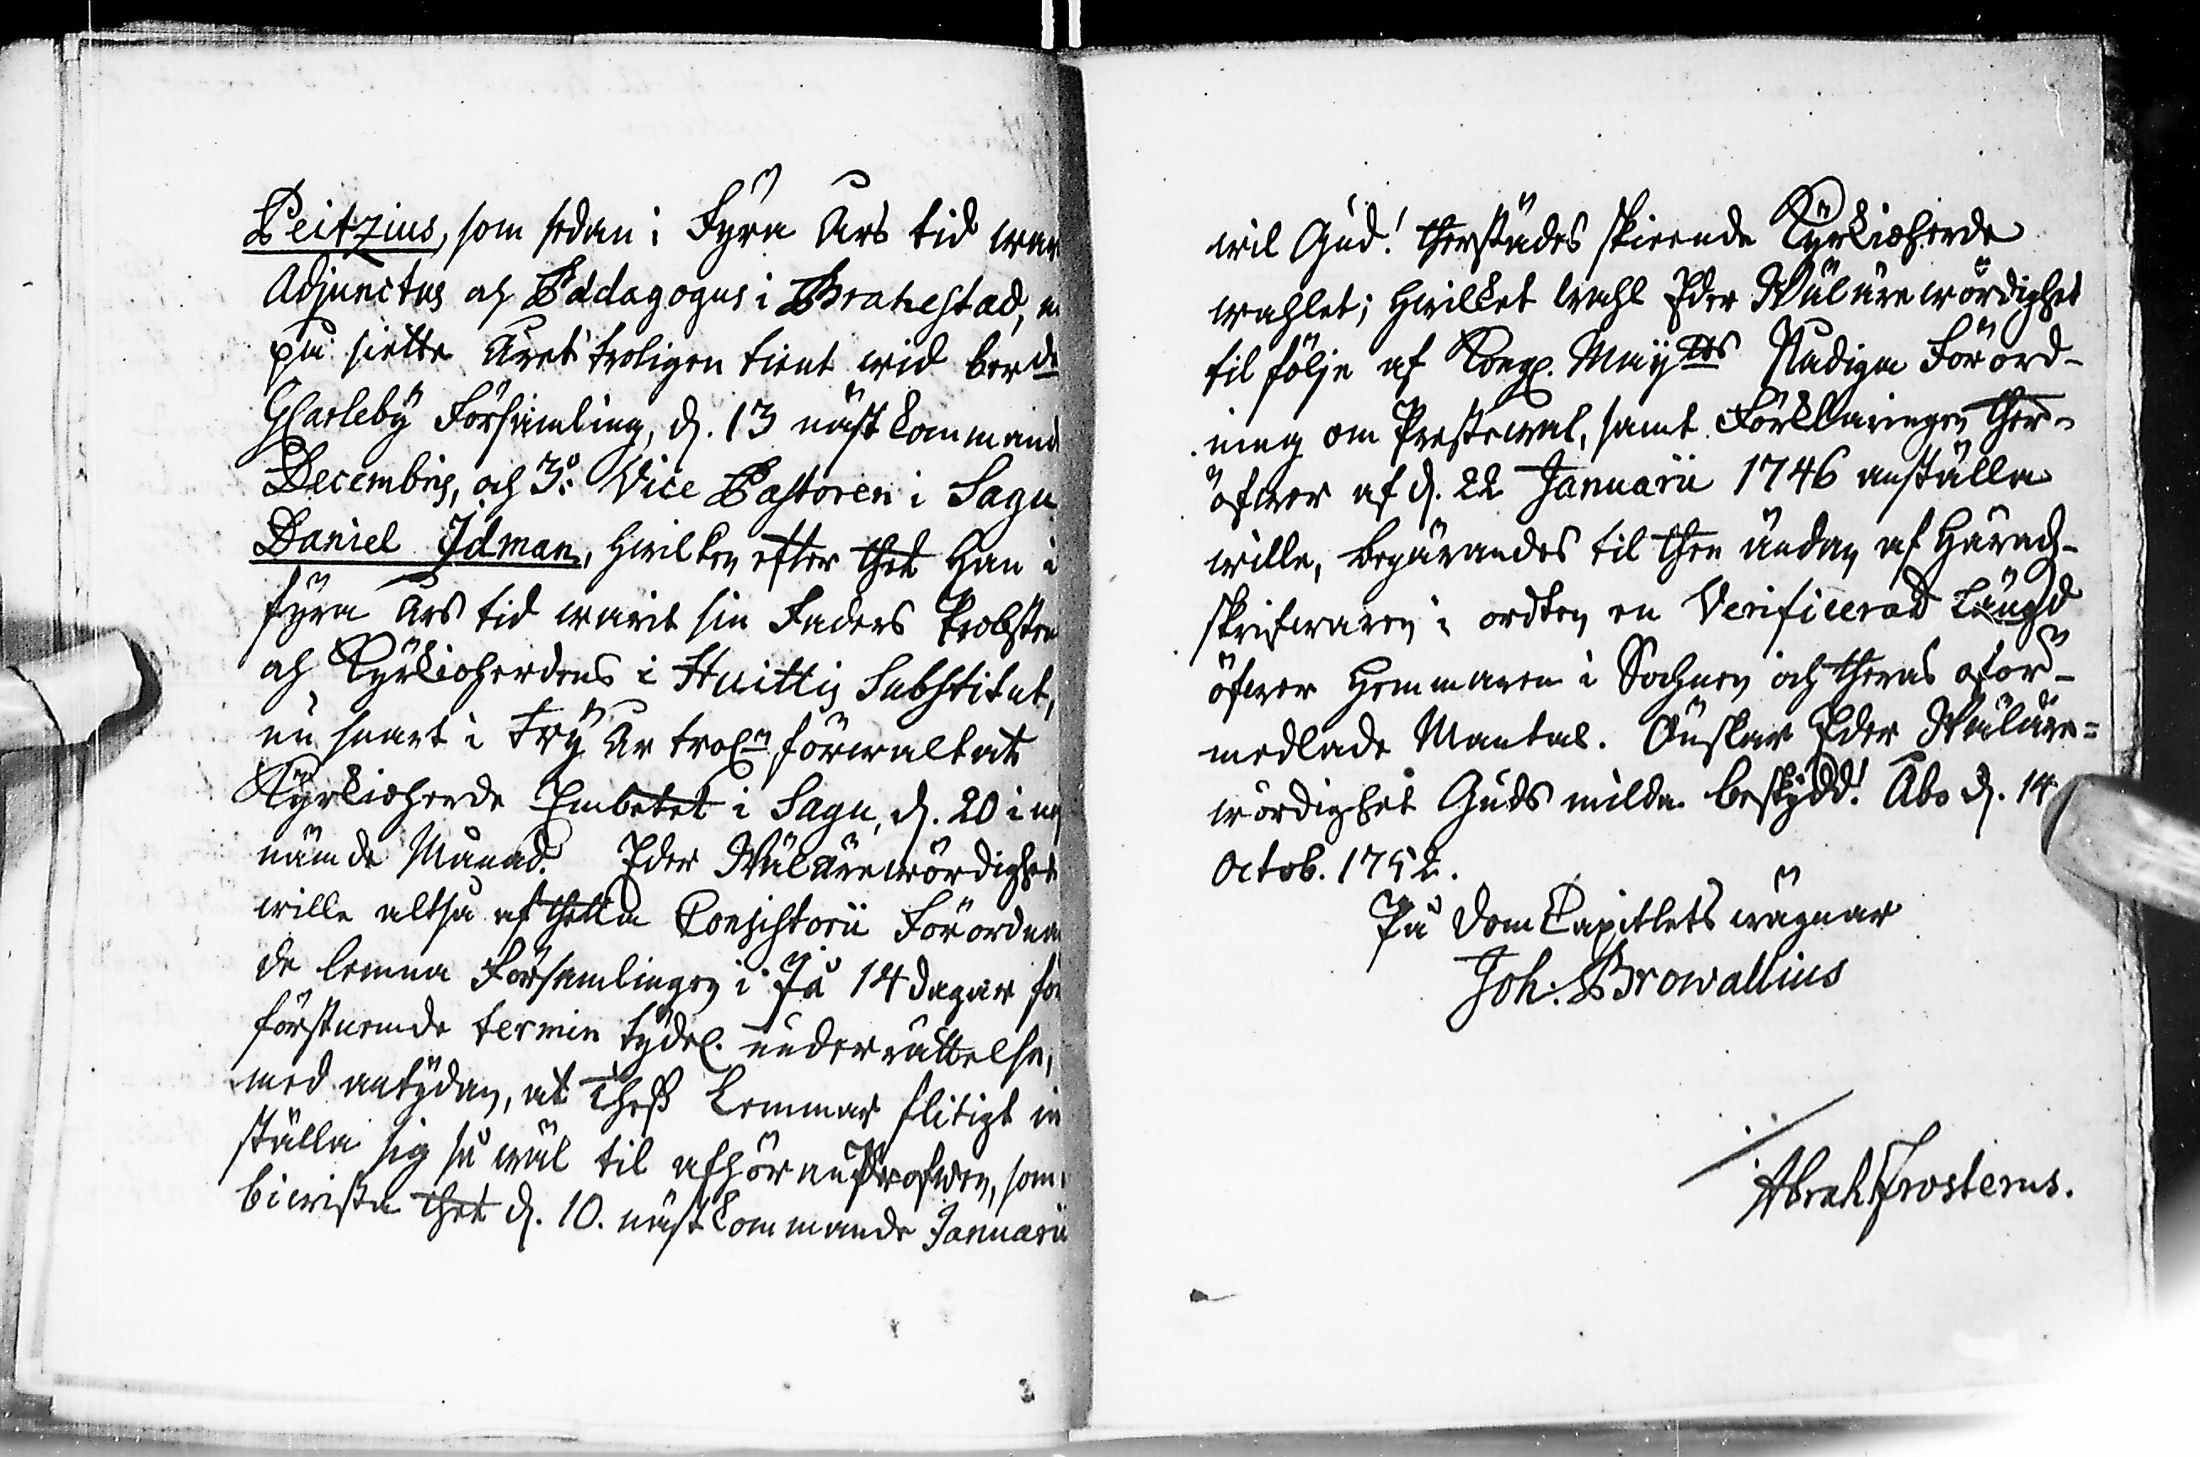 Peitzius, som sedan i Fyra Års tid war
Adjunctus och Pædagogus i Brahestad,
på siette Året troligen tient wid berde
GCarleby Församling, d. 13 nästkommand
Decembris, och 3:o Vice Pastoren i Sagu
Daniel Idman, hwilken efter thet Han i
fyra Års tid warit sin Faders Probsten
och Kyrkioherdens i Huittis Substitut,
nu snart i Try År trol:n förwaltat
Kyrkioherde Embetet i Sagu, d. 20 i
nämde Månad. Eder Wälärewördighet
wille altså af thetta Consistorii Förordnan
de lemna Församlingen i På 14 dagar för
förstnemde termin tydel. underrättelse,
med antydan, at Thess Lemmar flitigt in
ställa sig så wäl til afhöra Profwen, som
biwista thet d. 10. nästkommande Januarii
wil Gud! therstädes skieende Kyrkioherde
wahlet; hwilket wahl Eder Wälärewördighet
til följe af Kongl. Maij:tts Nådiga Förord-
ning om Prestewal, samt Förklaringen ther-
öfwer af d. 22 Januarii 1746 anställa
wille, begärandes til then ändan af Härads-
skrifwaren i orten en Verificerad Längd
öfwer Hemmanen i Sochnen och theras oför-
medlade Mantal. Önskar Eder Wäläre=
wördighet Guds milda beskydd! Åbo d. 14
Octob. 1752.
På DomCapitlets wägnar
Joh: Browallius
Abrah Frosterus.